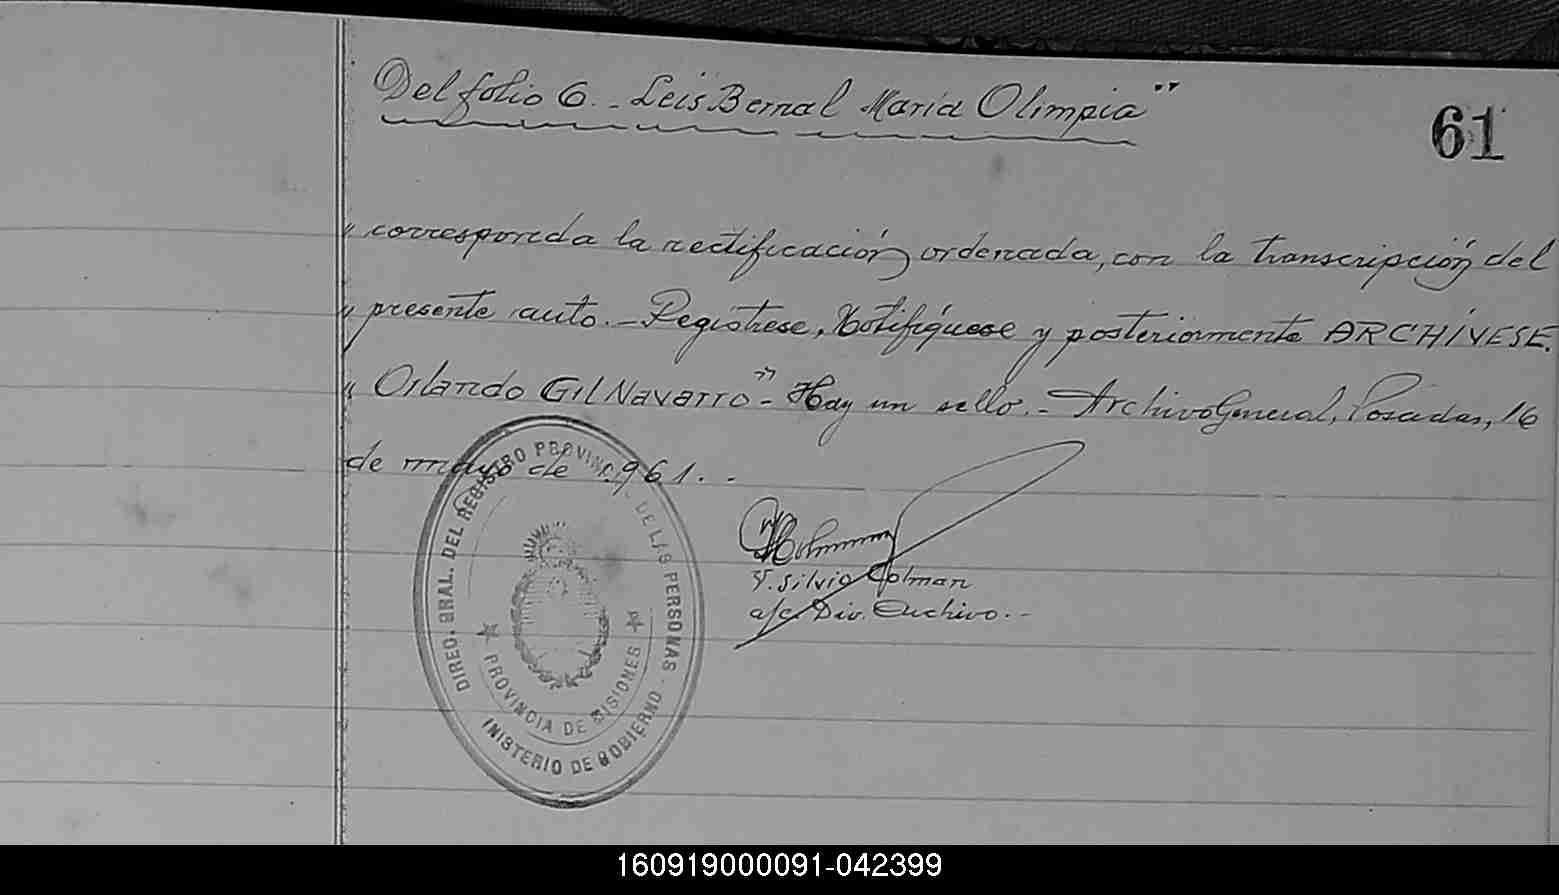 Del folio 6. - Leis Bernal María Olimpia"
61
" corresponda la rectificación ordenada, con la transcripción del
" presente auto. - Regístrese, Notifíquese y posteriormente ARCHÍVESE.
" Orlando Gil Navarro" - Hay un sello. - Archivo General, Posadas, 16
de mayo de 1.961. . -
V. Silvio Colman
a/c. Div. Archivo. -
DIREC. GRAL. DEL REGISTRO PROVINCIAL DE LAS PERSONAS
PROVINCIA DE MISIONES
MINISTERIO DE GOBIERNO
160919000091-042399